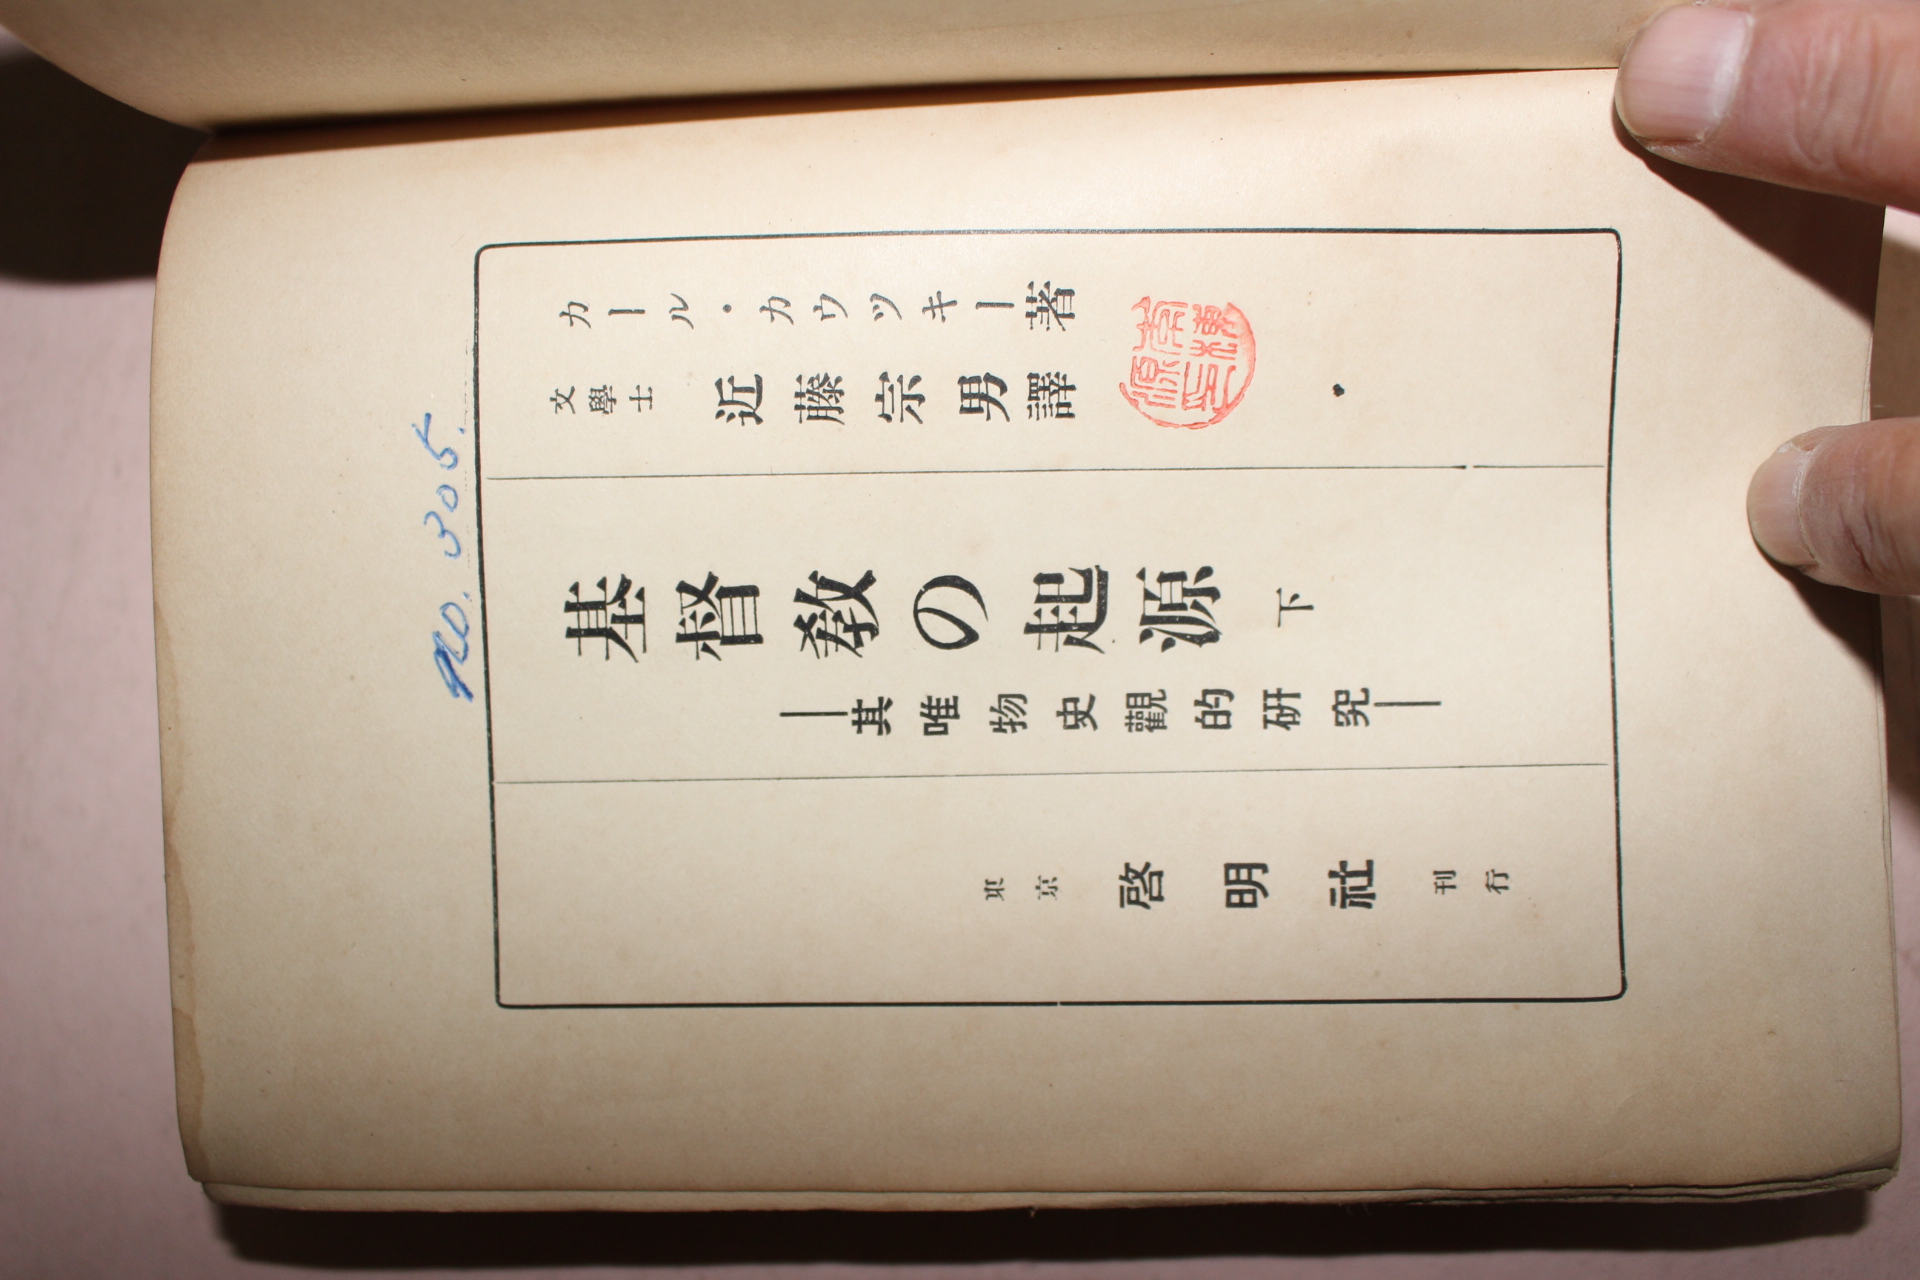 No. 305.
カール・カウツキー著
文學士 近藤宗男譯
基督教の起源 下
―其唯物史觀的研究―
東京 啓明社 刊行